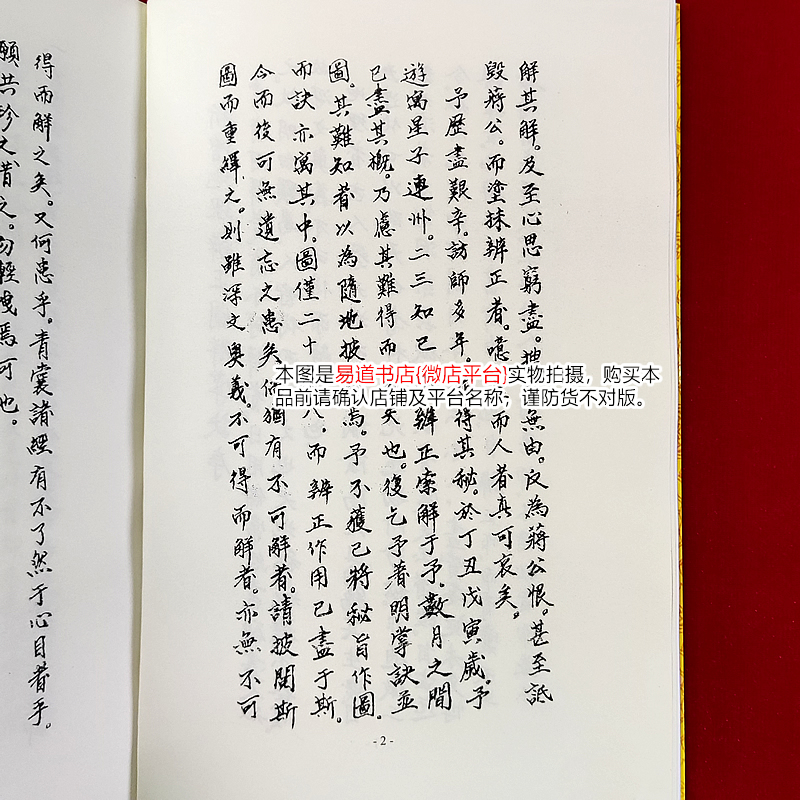 解其解。及至心思窮盡。無由。反為蔣公恨。甚至詆
毀蔣公。而塗抹辨正者。噫而人者真可哀矣。
予歷盡艱辛。訪師多年。得其秘。於丁丑戊寅歲。予
遊寓星子連州。二三知已辨正索解于予。數月之間
已盡其概。乃慮其難得而矣也。復乞予著明掌訣並
圖。其難知者以為隨地披焉。予不獲已將秘旨作圖。
而訣亦寓其中。圖僅二十八。而辨正作用已盡于斯。
今而後可無遺忘之患矣。倘猶有不可解者。請披閱斯
圖而重繹之。則雖深文奧義。不可得而解者。亦無不可
-2-
得而解之矣。又何患乎。青囊諸經有不了然于心目者乎。
願共珍之惜之。勿輕洩焉可也。
本图是易道书店{微店平台}实物拍摄，购买本
品前请确认店铺及平台名称，谨防货不对版。